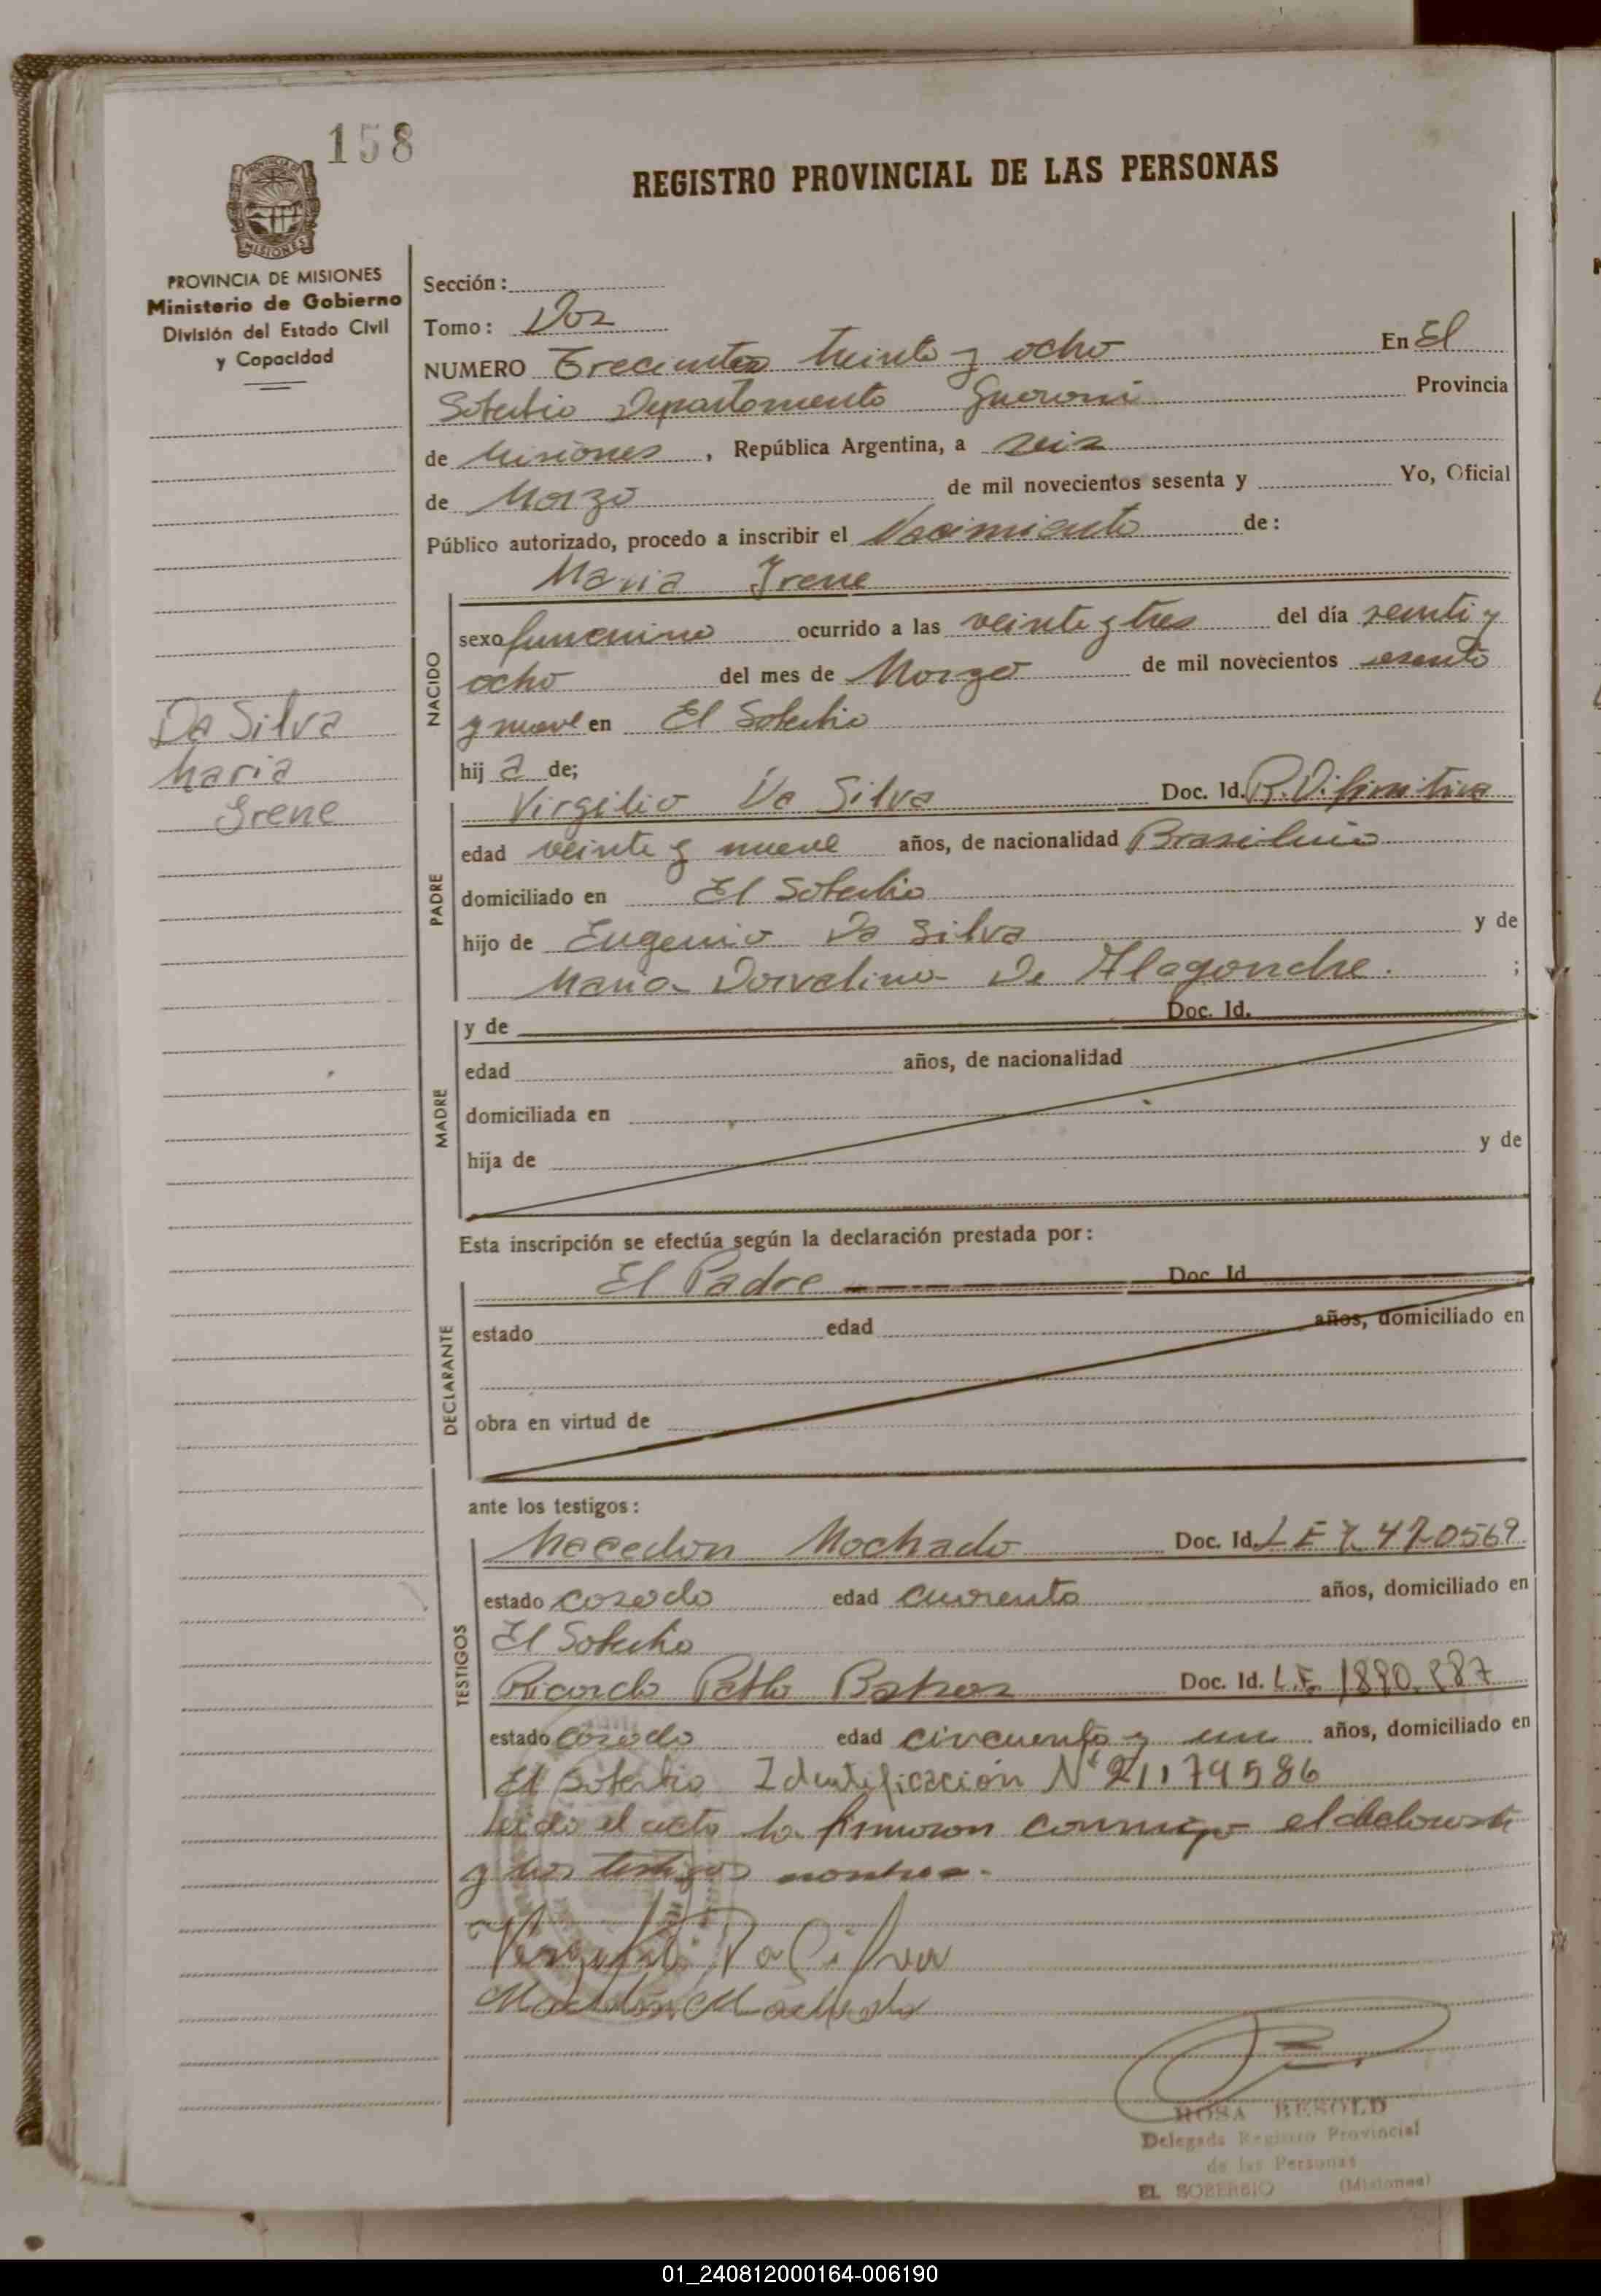 158
REGISTRO PROVINCIAL DE LAS PERSONAS
PROVINCIA DE MISIONES
MISIONES
PROVINCIA DE MISIONES
Ministerio de Gobierno
División del Estado Civil
y Capacidad
Da Silva
Maria
Irene
Sección:
Tomo: Dos
NUMERO Trecientos treinta y ocho En El
Soberbio Departamento Guarani Provincia
de Misiones, República Argentina, a seis
de Marzo de mil novecientos sesenta y Yo, Oficial
Público autorizado, procedo a inscribir el Nacimiento de:
Maria Irene
NACIDO
sexo femenino ocurrido a las veinte y tres del día veinti y
ocho del mes de Marzo de mil novecientos sesenta
y nueve en El Soberbio
hij a de;
PADRE
Virgilio Da Silva Doc. Id. R. Difinitiva
edad veinte y nueve años, de nacionalidad Brasileño
domiciliado en El Soberbio
hijo de Eugenio Da Silva y de
Maria Dorvalina De ;
MADRE
y de Doc. Id.
edad años, de nacionalidad
domiciliada en
hija de y de
Esta inscripción se efectúa según la declaración prestada por:
DECLARANTE
El Padre Doc. Id.
estado edad años, domiciliado en
obra en virtud de
ante los testigos:
TESTIGOS
Macedon Machado Doc. Id. L E 7.470569
estado casado edad cuarenta años, domiciliado en
El Soberbio
Ricardo Pablo Doc. Id. L.E. 1890.887
estado casado edad cincuenta y un años, domiciliado en
El Soberbio Identificación N° 21179586
Leido el acta la firmaron conmigo el declarante
y los testigos
Da Silva
Machado
ROSA BESOLD
Delegada Registro Provincial
de las Personas
EL SOBERBIO (Misiones)
01_240812000164-006190